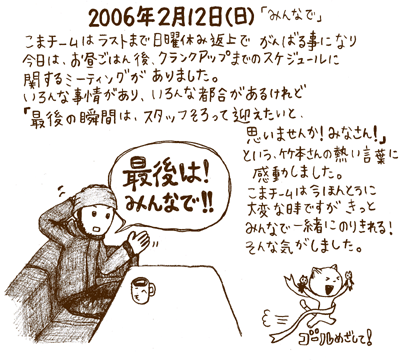 2006年2月12日(日)「みんなで」
こまチームはラストまで日曜休み返上で がんばる事になり
今日は、お昼ごはん後、クランクアップまでのスケジュールに
関するミーティングが ありました。
いろんな事情があり、いろんな都合があるけれど
「最後の瞬間は、スタッフそろって迎えたいと、
思いませんか!みなさん!」
という、竹本さんの熱い言葉に
感動しました。
こまチームは今ほんとうに
大変な時ですが きっと
みんなで一緒にのりきれる!
そんな気がしました。
最後は!
みんなで!!
ゴールめざして!